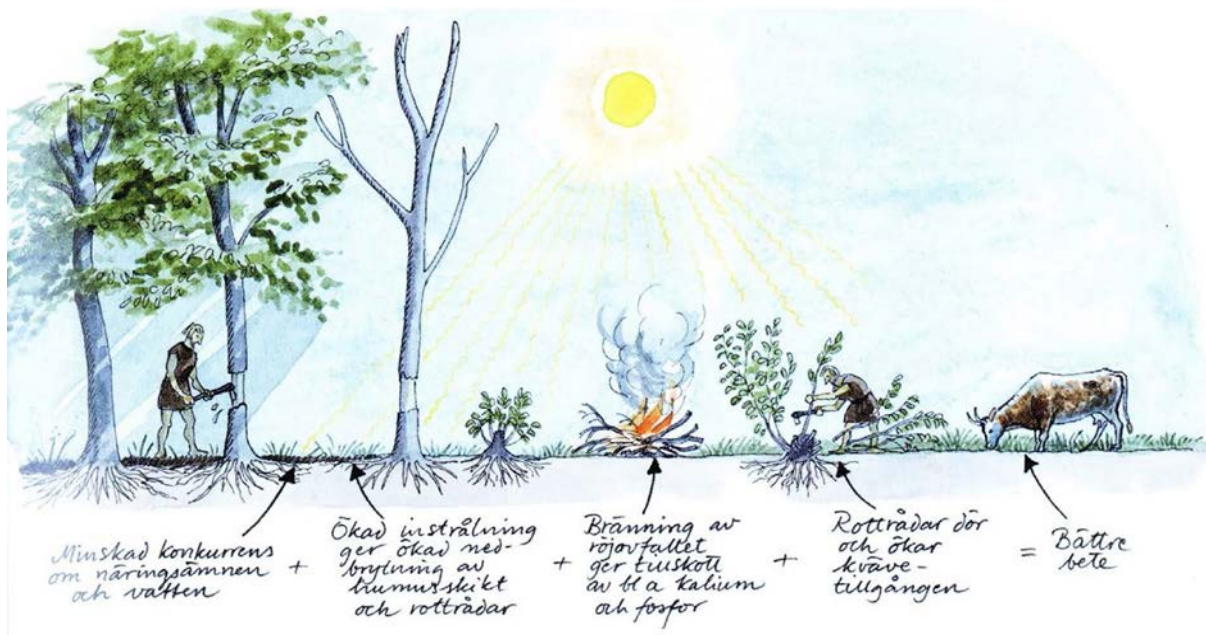 Minskad konkurrens
om näringsämnen
och vatten
+
Ökad instrålning
ger ökad ned-
brytning av
humusskikt
och rottrådar
+
Bränning av
röjavfallet
ger tillskott
av bl a kalium
och fosfor
+
Rottrådar dör
och ökar
kväve-
tillgången
=
Bättre
bete